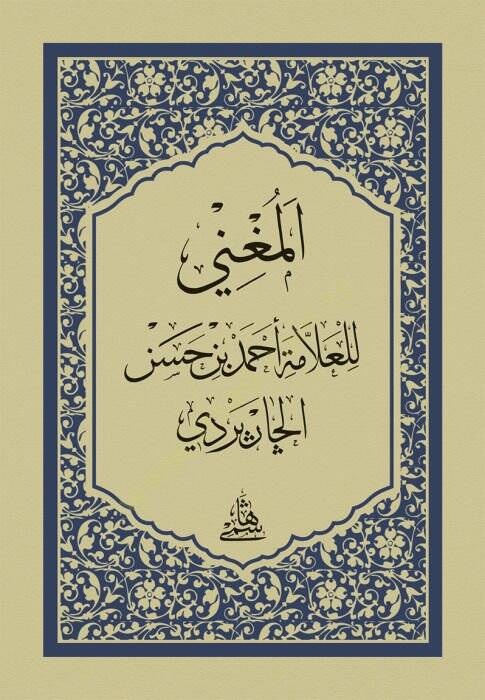 اَلْمُغْنِي
لِلْعَلَّامَةِ أَحْمَدَ بْنِ حَسَنْ
الجَارْبَرْدِي
هَاشِمِي